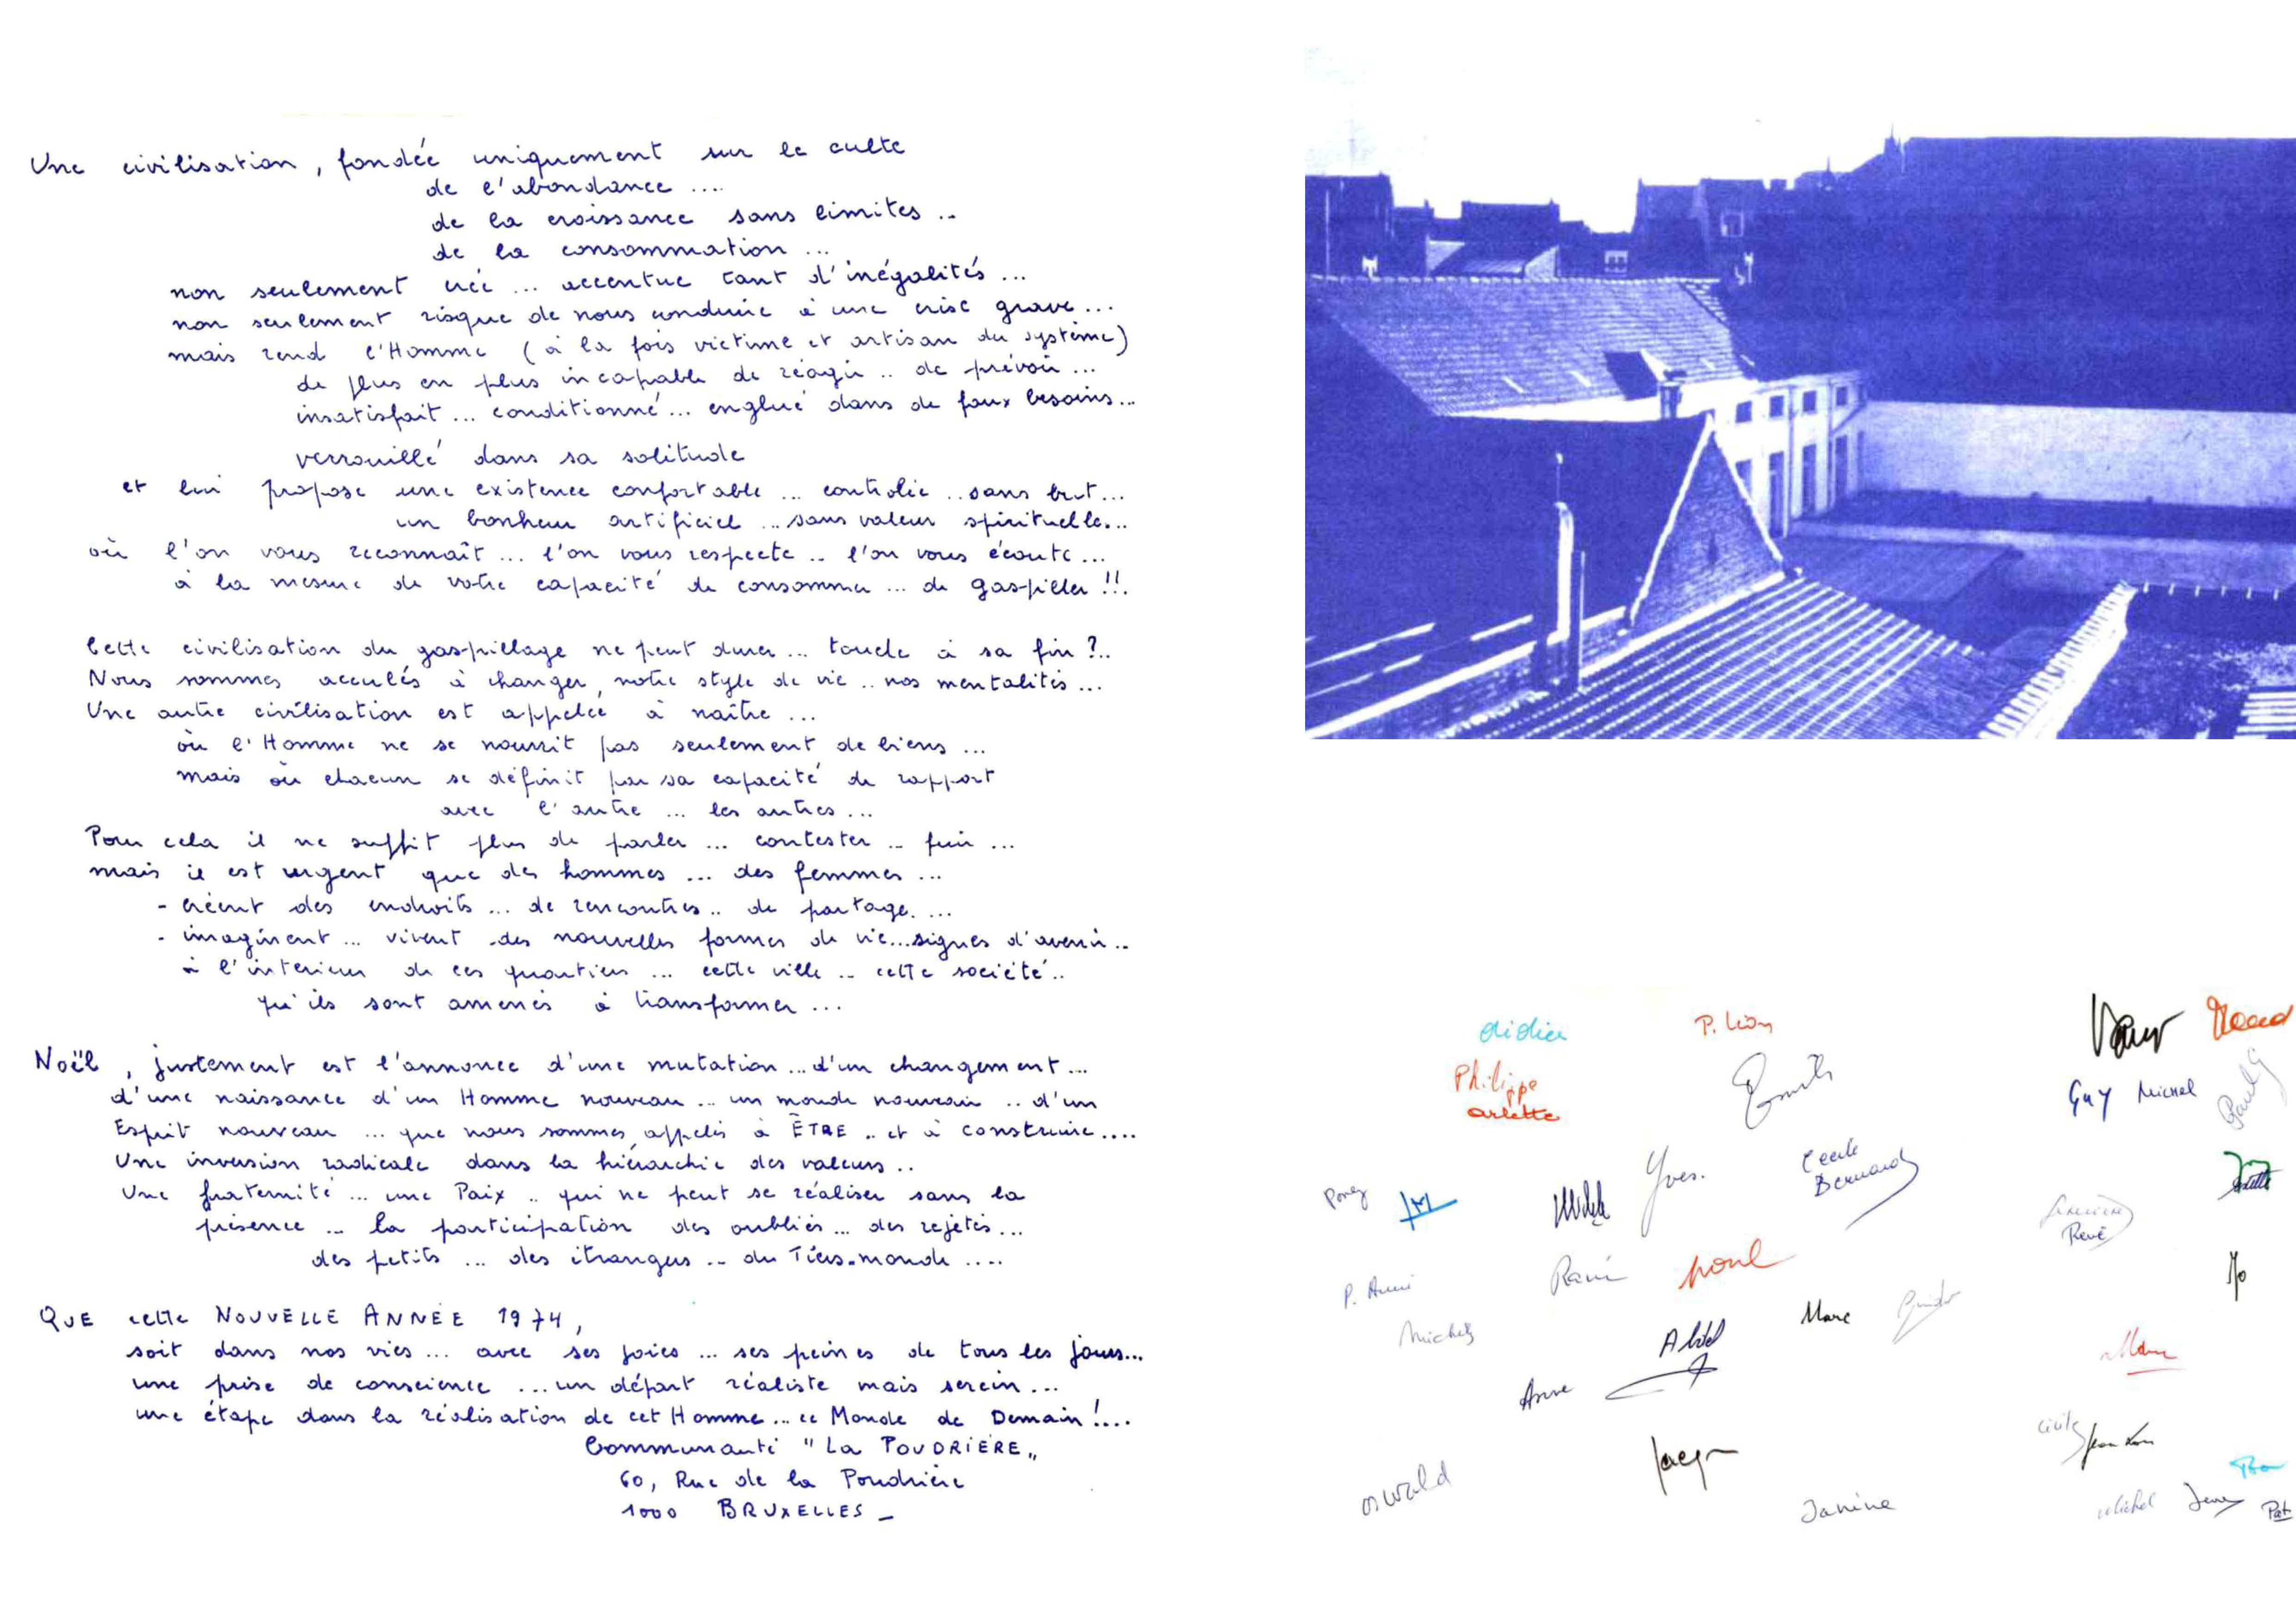 Une civilisation, fondée uniquement sur le culte
de l'abondance ....
de la croissance sans limites ..
de la consommation ...
non seulement crée ... accentue tant d'inégalités ...
non seulement risque de nous conduire à une crise grave ...
mais rend l'Homme (à la fois victime et artisan du système)
de plus en plus incapable de réagir .. de prévoir ...
insatisfait ... conditionné ... englué dans de faux besoins ...
verrouillé dans sa solitude
et lui propose une existence confortable ... contrôlée .. sans but ...
un bonheur artificiel ... sans valeur spirituelle ...
où l'on vous reconnaît ... l'on vous respecte .. l'on vous écoute ...
à la mesure de votre capacité de consommer ... de gaspiller !!.
Cette civilisation du gaspillage ne peut durer ... touche à sa fin ?..
Nous sommes acculés à changer, notre style de vie .. nos mentalités ...
Une autre civilisation est appelée à naître ...
où l'Homme ne se nourrit pas seulement de biens ...
mais où chacun se définit par sa capacité de rapport
avec l'autre ... les autres ...
Pour cela il ne suffit plus de parler ... contester .. fuir ...
mais il est urgent que des hommes ... des femmes ...
- créent des endroits ... de rencontres .. de partage. ...
- imaginent ... vivent des nouvelles formes de vie ... signes d'avenir ..
à l'intérieur de ces quartiers ... cette ville .. cette société ..
qu'ils sont amenés à transformer ...
Noël, justement est l'annonce d'une mutation ... d'un changement ...
d'une naissance d'un Homme nouveau ... un monde nouveau .. d'un
Esprit nouveau ... que nous sommes appelés à ÊTRE .. et à construire ....
Une inversion radicale dans la hiérarchie des valeurs ..
Une fraternité ... une Paix .. qui ne peut se réaliser sans la
présence ... la participation des oubliés ... des rejetés ...
des petits ... des étrangers .. du Tiers-monde ....
QUE cette NOUVELLE ANNÉE 1974,
soit dans nos vies ... avec ses joies ... ses peines de tous les jours ...
une prise de conscience ... un départ réaliste mais serein ...
une étape dans la réalisation de cet Homme ... ce Monde de Demain !....
Communauté "LA POUDRIÈRE"
60, Rue de la Poudrière
1000 BRUXELLES _
didier
P. Léon
Philippe
arlette
Guy Michel
Yves.
Cecile
Bernard
René
Marc
Anne
Jo
oswald
Janine
Michel
Pat